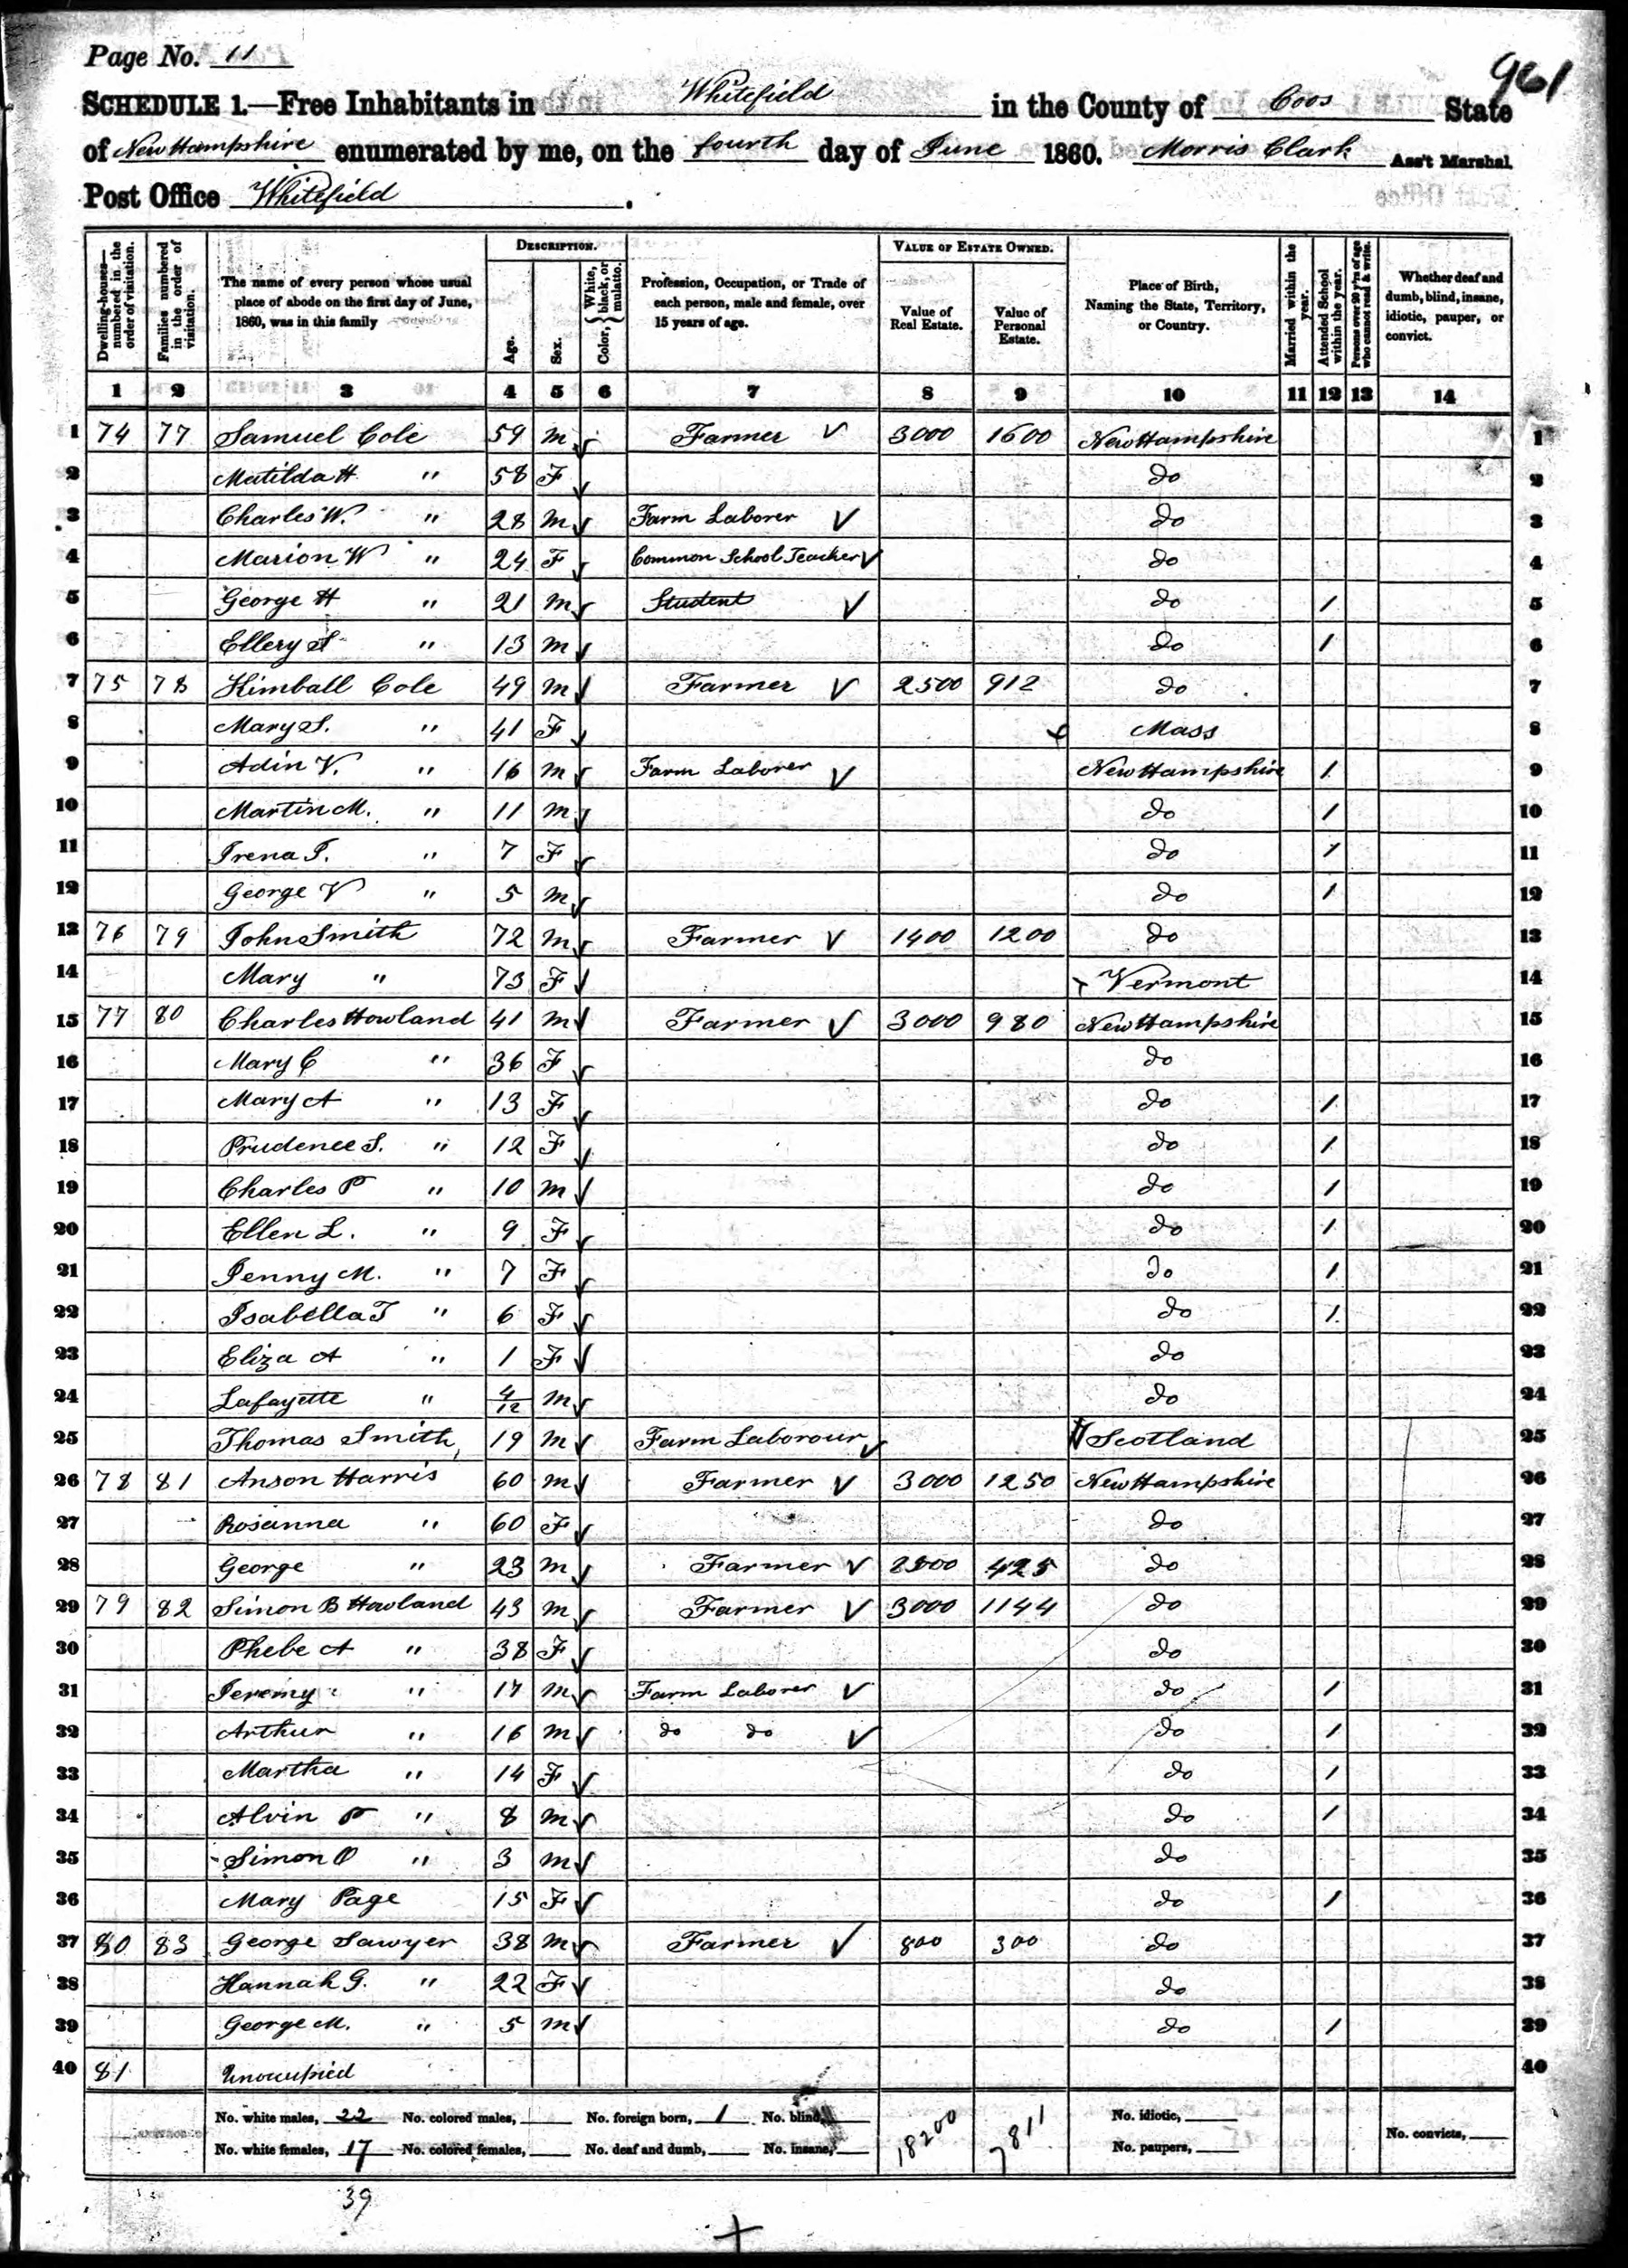 Page No. 11
961
SCHEDULE 1.—Free Inhabitants in Whitefield in the County of Coos State
of New Hampshire enumerated by me, on the fourth day of June 1860. Morris Clark Ass't Marshal
Post Office Whitefield .
DESCRIPTION. VALUE OF ESTATE OWNED.
Dwelling-houses—numbered in the order of visitation. Families numbered in the order of visitation. The name of every person whose usual place of abode on the first day of June, 1860, was in this family Age. Sex. Color, { White, black, or mulatto. Profession, Occupation, or Trade of each person, male and female, over 15 years of age. Value of Real Estate. Value of Personal Estate. Place of Birth, Naming the State, Territory, or Country. Married within the year. Attended School within the year. Persons over 20 y'rs of age who cannot read & write. Whether deaf and dumb, blind, insane, idiotic, pauper, or convict.
1 2 3 4 5 6 7 8 9 10 11 12 13 14
1 74 77 Samuel Cole 59 m Farmer 3000 1600 New Hampshire 1
2 Matilda H " 58 F do 2
3 Charles W. " 28 m Farm Laborer do 3
4 Marion W " 24 F Common School Teacher do 4
5 George H " 21 m Student do / 5
6 Ellery S " 13 m do / 6
7 75 78 Kimball Cole 49 m Farmer 2500 912 do 7
8 Mary S. " 41 F Mass 8
9 Adin V. " 16 m Farm Laborer New Hampshire / 9
10 Martin M. " 11 m do / 10
11 Irena T. " 7 F do / 11
12 George V " 5 m do / 12
13 76 79 John Smith 72 m Farmer 1400 1200 do 13
14 Mary " 73 F Vermont 14
15 77 80 Charles Howland 41 m Farmer 3000 980 New Hampshire 15
16 Mary C " 36 F do 16
17 Mary A " 13 F do / 17
18 Prudence S. " 12 F do / 18
19 Charles P " 10 m do / 19
20 Ellen L. " 9 F do / 20
21 Jenny M. " 7 F do / 21
22 Isabella T " 6 F do / 22
23 Eliza A " 1 F do 23
24 Lafayette " 4/12 m do 24
25 Thomas Smith, 19 m Farm Laborour Scotland 25
26 78 81 Anson Harris 60 m Farmer 3000 1250 New Hampshire 26
27 Rosanna " 60 F do 27
28 George " 23 m Farmer 425 do 28
29 79 82 Simon B Howland 43 m Farmer 3000 1144 do 29
30 Phebe A " 38 F do 30
31 Jeremy " 17 m Farm Laborer do / 31
32 Arthur " 16 m do do do / 32
33 Martha " 14 F do / 33
34 Alvin P " 8 m do / 34
35 Simon O " 3 m do 35
36 Mary Page 15 F do / 36
37 80 83 George Sawyer 38 m Farmer 800 300 do 37
38 Hannah G. " 22 F do 38
39 George M. " 5 m do / 39
40 81 Unoccupied 40
No. white males, 22 No. colored males, No. foreign born, 1 No. blind, 18200 7811 No. idiotic,
No. white females, 17 No. colored females, No. deaf and dumb, No. insane, No. paupers, No. convicts,
39